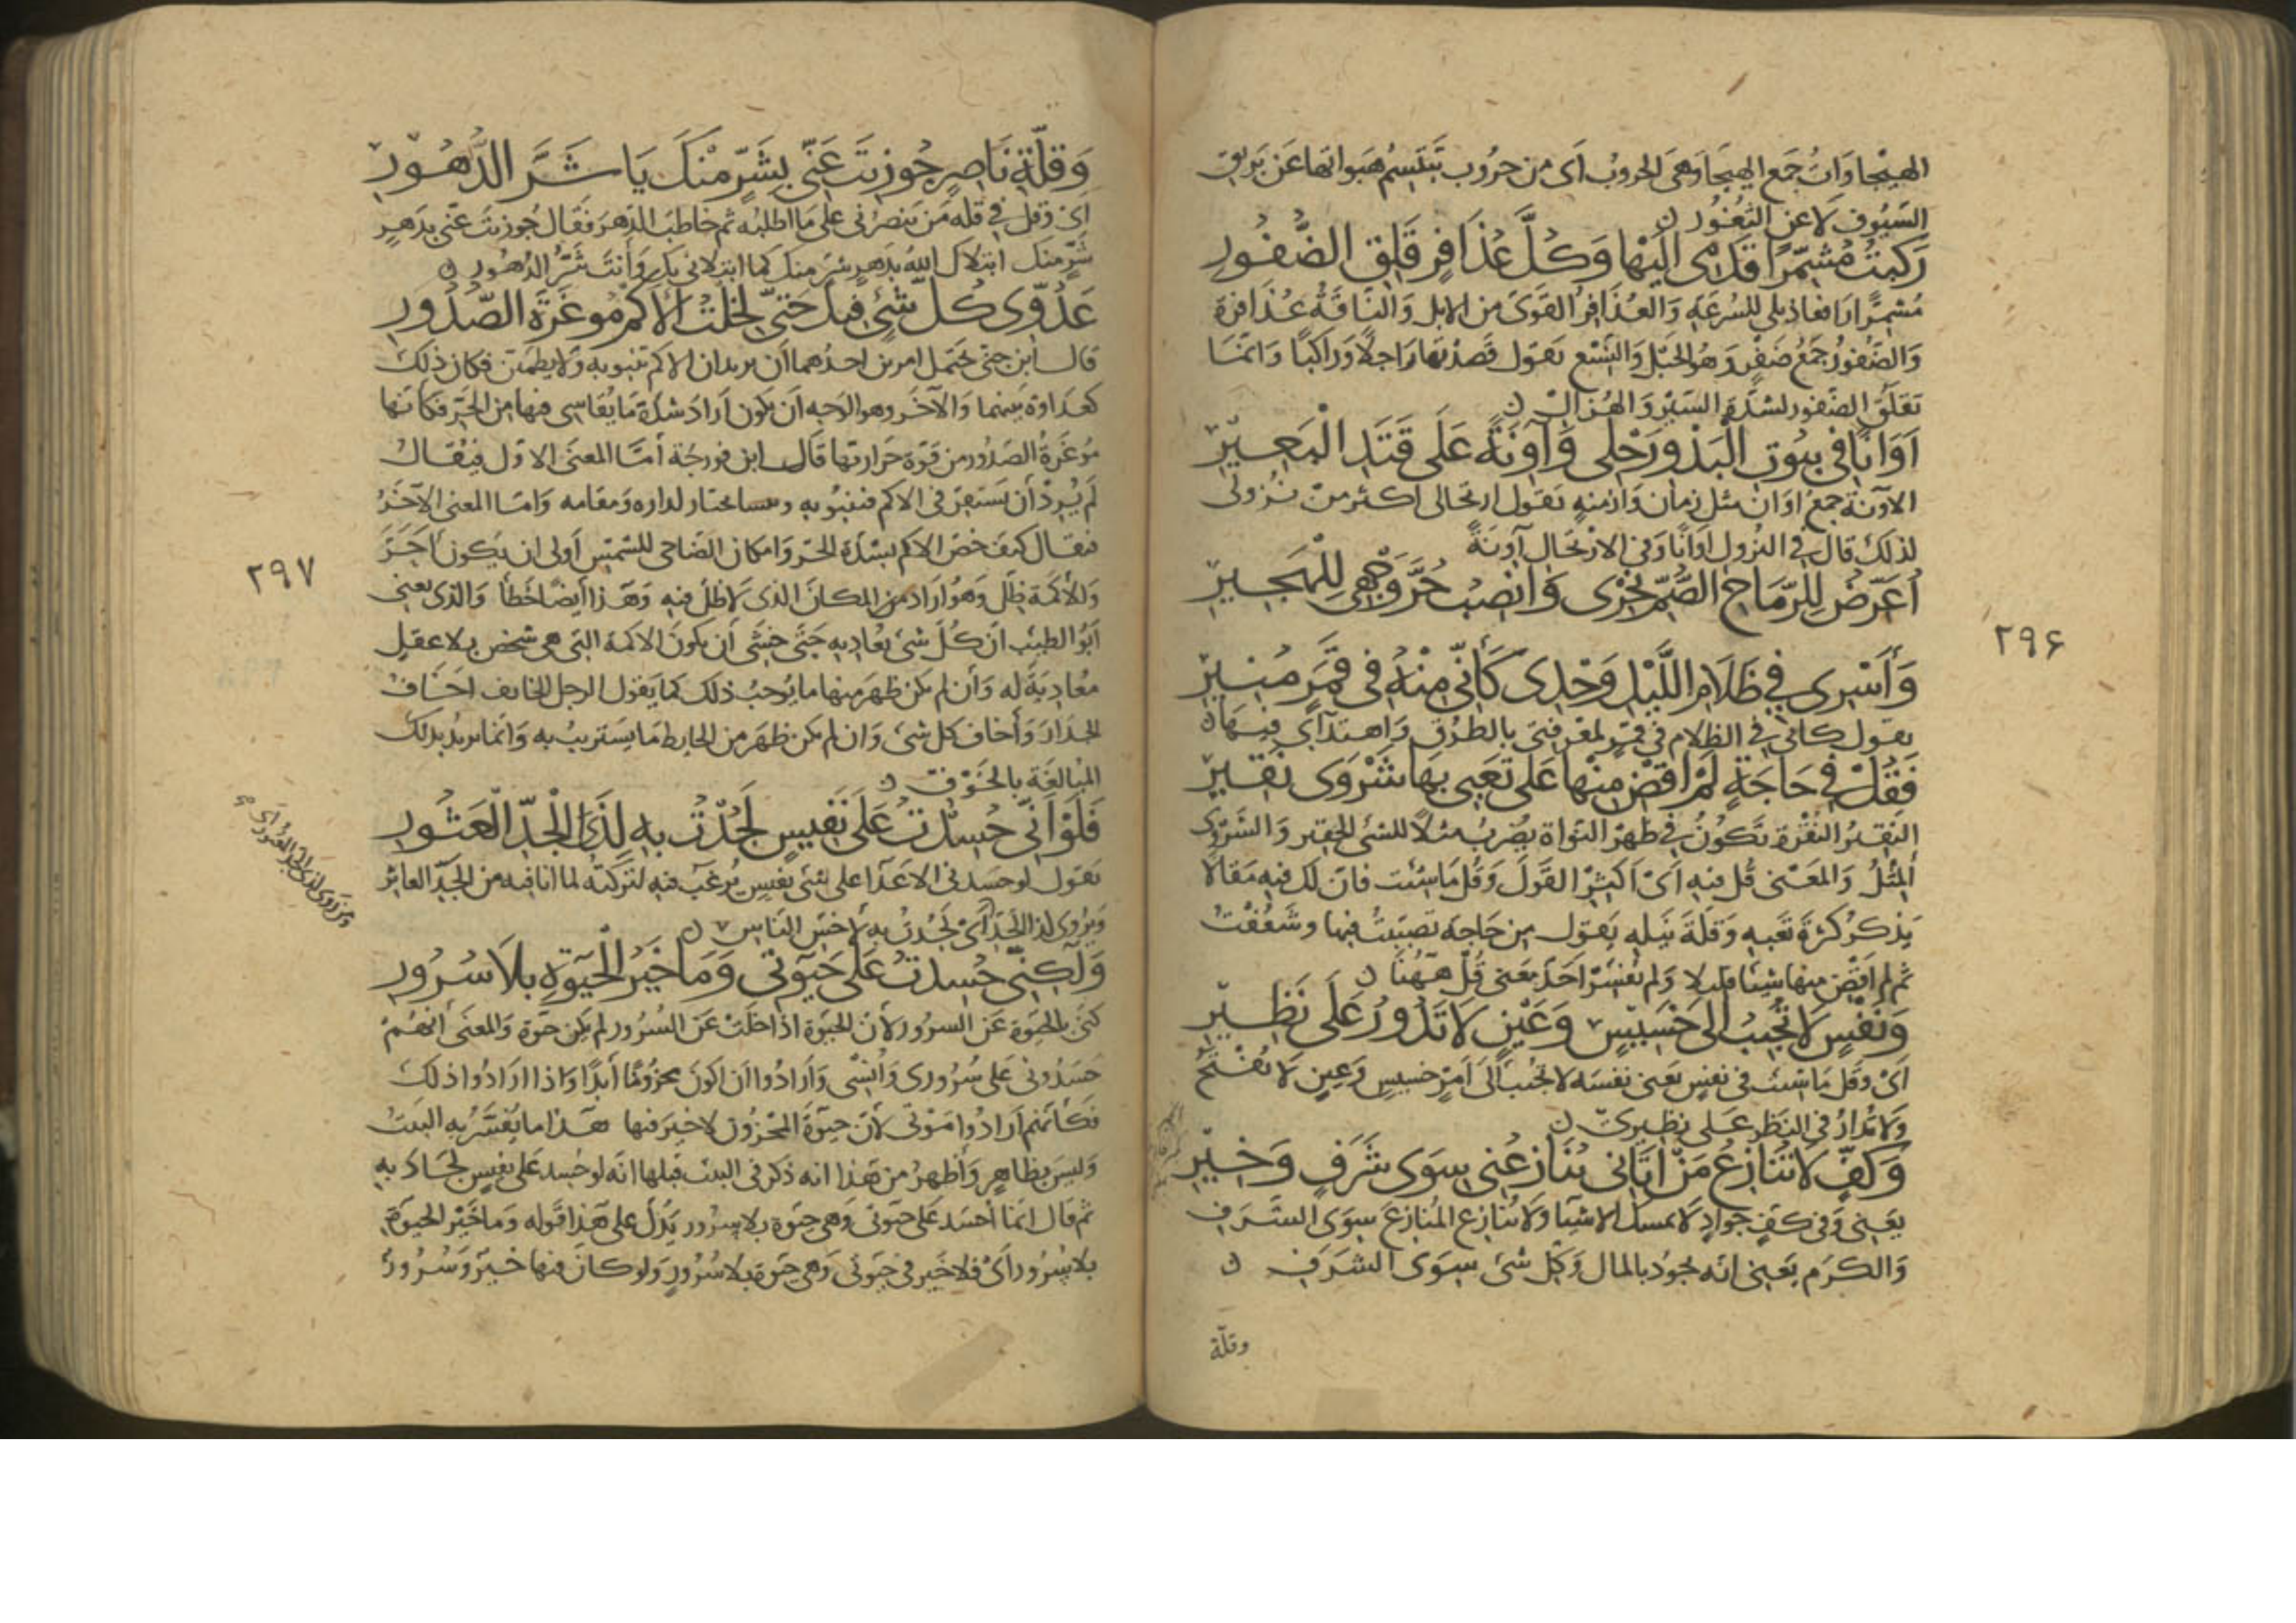 الهيجاوات جمع الهيجا وهي الحروب أي من حروب تبتسم هبواتها عن بريق
السيوف لا عن الثغور ن
رَكِبتُ مُشَمِّرًا قَدَمِى اِلَيْهَا وَكُلَّ عُذَافِرٍ قَلِقِ الضُّفُورِ
مشمرًا رافعا ذيلي للسرعة والعذافر القوى من الابل والناقة عذافرة
والضفور جمع ضفر وهو الحبل والنسع يقول قصدتها راجلًا وراكبًا وانما
تقلق الضفور لشدة السير والهزال ن
اَوَانًا فِى بيُوتِ الْبَدْوِ رَحْلِى وَآوِنَةً عَلَى قَتَدِ الْبَعِيرِ
الآونة جمع اوان مثل زمان وازمنه يقول ارتحالى اكثر من نزولى
لذلك قال في النزول اوانًا وفى الارتحال آونةً
أُعَرِّضُ لِلرِّمَاحِ الصُّمِّ نَحْرِى وَانْصِبُ حُرَّ وَجْهِى لِلْهَجِيرِ
وَأَسْرِى فِي ظَلَامِ اللَّيْلِ وَحْدِى كَأَنِّى مِنْهُ فِى قَمَرٍ مُنِيرِ
يقول كاني في الظلام في قمر لمعرفتى بالطرق واهتدآي فيها ن
فَقُلْ فِى حَاجَةٍ لَمْ اَقْضِ مِنْهَا عَلَى تَعَبِى بِهَا شَرْوَى نَقِيرِ
النقير النقرة تكون في ظهر النواة يضرب مثلًا للشئ الحقير والشروى
المثل والمعنى قل فيه أى أكثر القول وقل ما شئت فان لك فيه مقالا
يذكر كثرة تعبه وقلة نيله يقول من حاجة تعبت فيها وشغفت
ثم لم اقض منها شيئا قليلا ولم يفسر احد معنى قل ههنا ن
وَنَفْسٍ لَا تُجِيبُ اِلَى خَسِيسٍ وَعَيْنٍ لَا تَدُورُ عَلَى نَظِيرِ
اى وقل ما شئت في نفس يعنى نفسه لا تجيب الى امر خسيس وعين لا تفتح
ولا تدار في النظر على نظيرى ن
وَكَفٍّ لَا تُنَازِعُ مَنْ اَتَانِى يُنَازِعُنِى سِوَى شَرَفِى وَخِيرِى
يعنى وفى كف جواد لا تمسك الاشيا ولا تنازع المنازع سوى الشرف
والكرم يعنى انه يجود بالمال وكل شئ سوى الشرف ن
وقلة
٢٩۶
وَقِلَّةِ نَاصِرٍ جُوزِيتَ عَنِّى بِشَرٍّ مِنْكَ يَا شَرَّ الدُّهُورِ
اى وقل في قله من ينصرنى على ما اطلبه ثم خاطب الدهر فقال جوزيت عنى بدهر
شر منك ابتلاك الله بدهر شر منك كما ابتلانى بك وأنت شر الدهور ن
عَدُوِّى كُلُّ شَئٍ فِيكَ حَتَّى لَخِلْتُ الْاُكْمَ مُوغَرَةَ الصُّدُورِ
قال ابن جنى يحتمل امرين احدهما ان يريد ان الاكم تنبو به ولا يطمئن فكان ذلك
كعداوة بينهما والآخر وهو الوجه ان يكون اراد شدة ما يقاسى فيها من الحر فكانها
موغرة الصدور من قوة حرارتها قال ابن فورجة أما المعنى الاول فيقال
لم يرد أن يستقر فى الاكم فتنبو به لداره ومقامه واما المعنى الآخر
فيقال كيف خص الاكم بشدة الحر والمكان الضاحى للشمس أولى ان يكون أحر
وللأكمة ظل وهو أراد من المكان الذى لا ظل فيه وهذا أيضا خطأ والذى يعنى
أبو الطيب ان كل شئ يعاديه حتى خشى أن يكون الاكمة التى هى شخص بلا عقل
معادية له وأن لم يكن ظهر منها ما يوجب ذلك كما يقول الرجل الخايف اخاف
الجدار وأخاف كل شئ وان لم يكن ظهر من الحايط ما يستريب به وانما يريد بذلك
المبالغة بالخوف ن
فَلَوْ اَنِّى حُسِدْتُ عَلَى نَفِيسٍ لَجُدْتُ بِهِ لِذِى الْجَدِّ الْعَثُورِ
يقول لو حسدنى الاعدا على شئ نفيس يرغب فيه لتركته لما انا فيه من الجد العاثر
ويروى لذا الجد أى لجدت به لأخس الناس ن
وَلٰكِنِّى حُسِدْتُ عَلَى حَيٰوتِى وَمَا خَيْرُ الْحَيٰوةِ بِلَا سُرُورِ
كنى بالحيوة عن السرور لأن الحيوة اذا خلت عن السرور لم يكن حيوة والمعنى أنهم
حسدونى على سرورى وأنسى وأرادوا ان اكون محزونًا أبدًا واذا ارادوا ذلك
فكأنهم ارادوا موتى لأن حيوة المحزون لا خير فيها هذا ما يفسر به البيت
وليس بظاهر وأظهر من هذا انه ذكر فى البيت قبلها انه لو حسد على نفيس لجاد به
ثم قال انما أحسد على حيوتى وهى حيوة بلا سرور يدل على هذا قوله وما خير الحيوة
بلا سرور أى فلا خير فى حيوتى وهى حيوة بلا سرور ولو كان فيها خير وسرور
٢٩٧